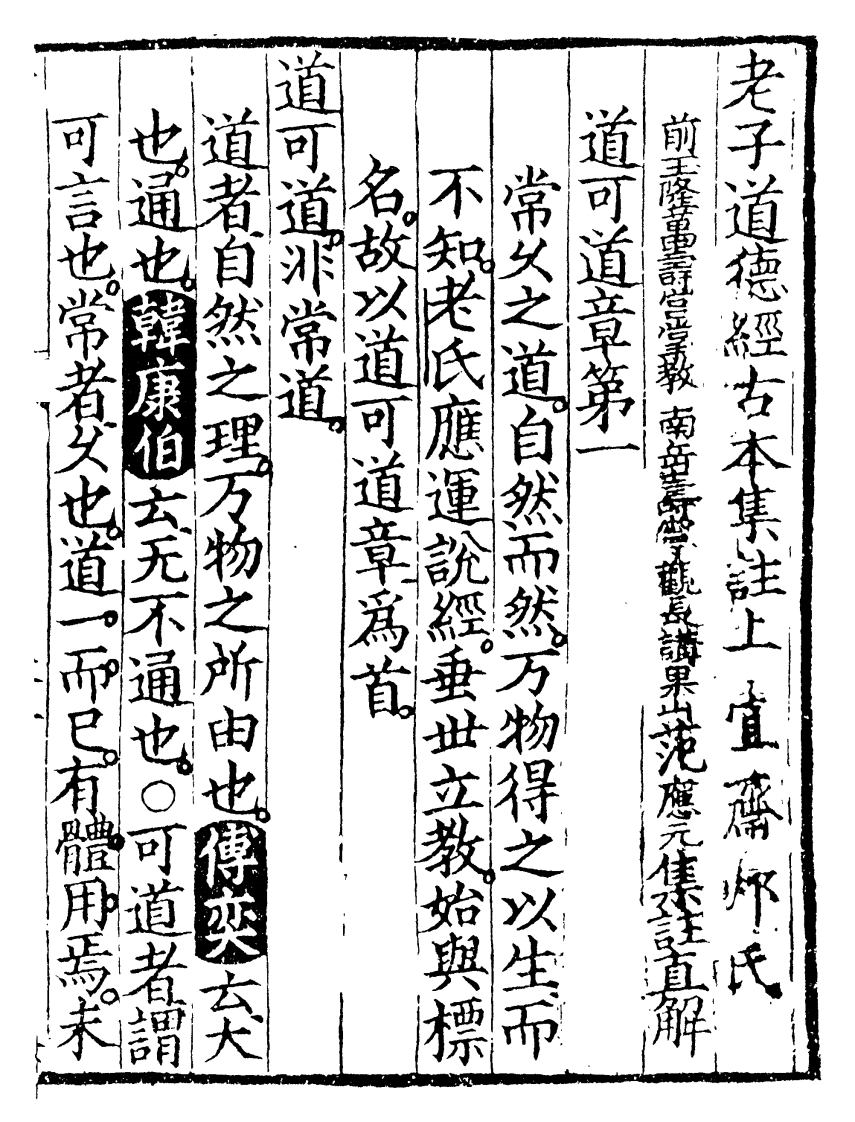 老子道德經古本集註上 直齋 氏
前玉隆萬壽宮掌教 南岳壽寧觀長講果山范應元集註直解
道可道章第一
常乆之道。自然而然。万物得之以生。而
不知。老氏應運說經。垂世立教。始與標
名。故以道可道章爲首。
道可道。非常道。
道者自然之理。万物之所由也。傅奕云大
也。通也。韓康伯云无不通也。○可道者謂
可言也。常者乆也。道一而已。有體用焉。未